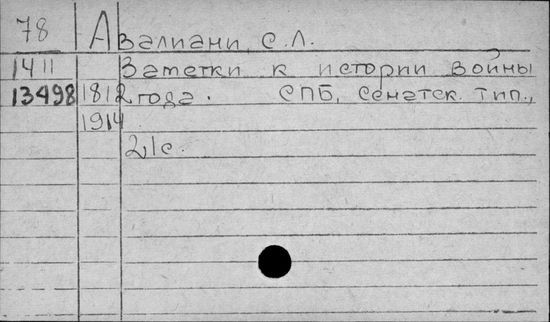 78 Авалиани, С.Л.
1411 Заметки к истории войны
13498 1812 года. СПБ, Сенатск. тип.,
1914
21с.